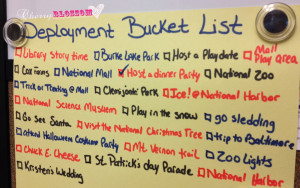 Cherry BLOSSOM
Deployment Bucket List
Library Story time Burke Lake Park Host a Playdate Mall Play area
Cox Farms National Mall Host a dinner Party National Zoo
Trick or Treating @ Mall Clemyjontri Park Ice! @ National Harbor
National Science Museum Play in the snow go sledding
Go See Santa visit the National Christmas Tree trip to Baltimore
attend Halloween Costume Party Mt. Vernon trail Zoo Lights
Chuck E. Cheese St. Patrick's day Parade National Harbor
Kristen's Wedding